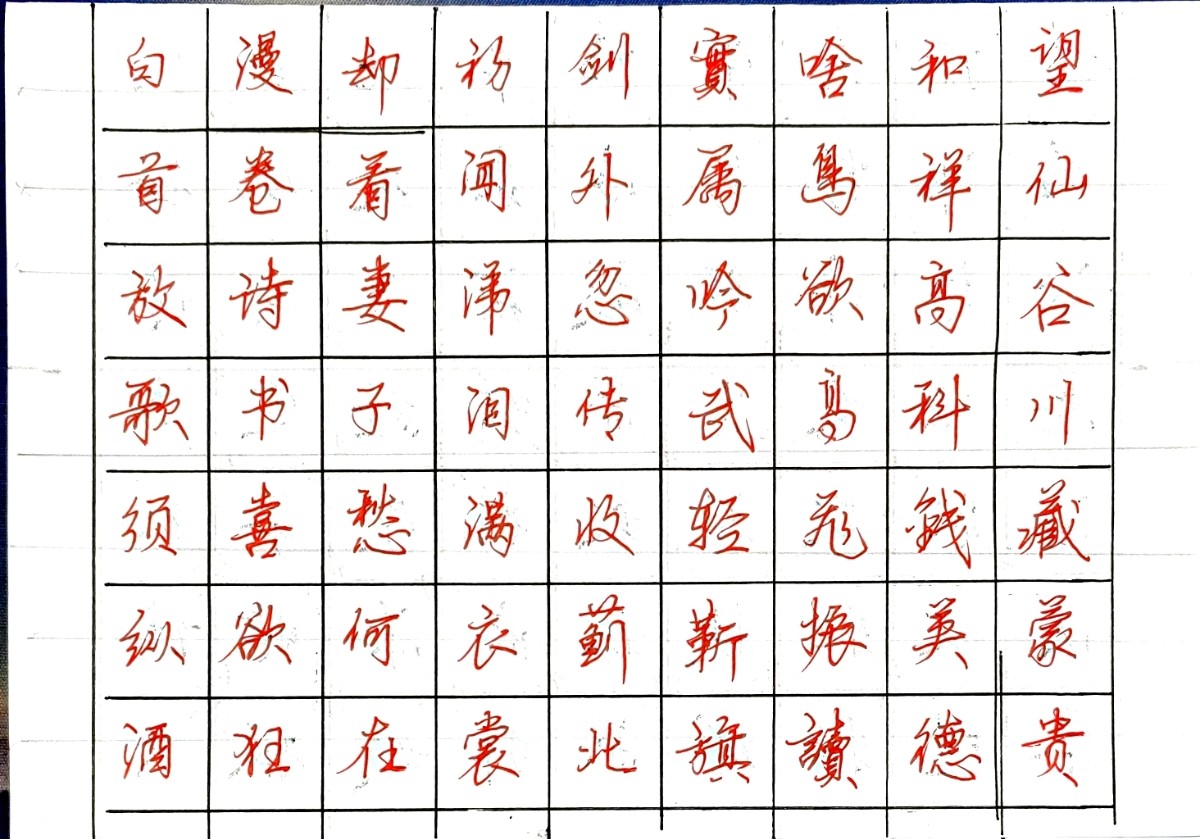 望仙谷川藏蒙贵
和祥高科钱英德
啥鳥欲高飛振讀
實属吟武轻靳旗
剑外忽传收蓟北
初闻涕泪满衣裳
却看妻子愁何在
漫卷诗书喜欲狂
白首放歌须纵酒